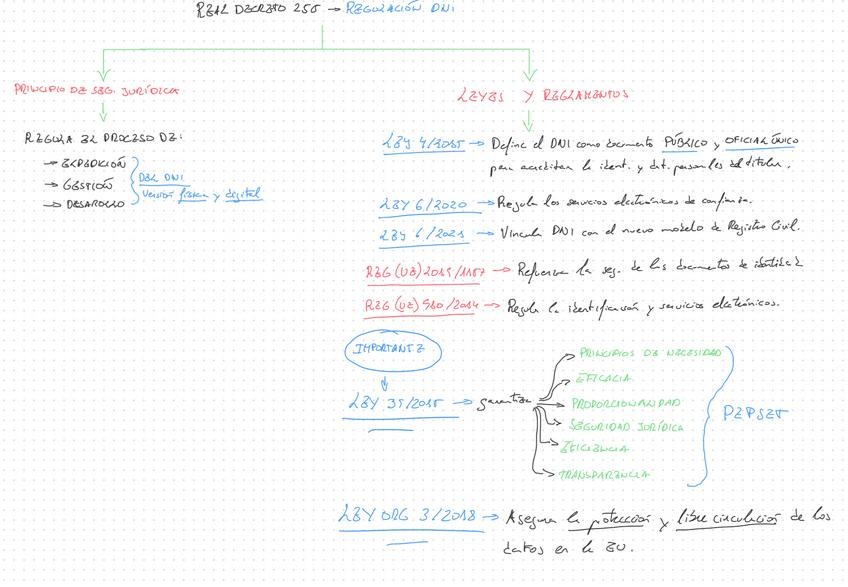 REAL DECRETO 255 → REGULACIÓN DNI
PRINCIPIO DE SEG. JURÍDICA
REGULA EL PROCESO DE:
→ EXPEDICIÓN
→ GESTIÓN
→ DESAROLLO
DEL DNI
Versión física y digital
LEYES Y REGLAMENTOS
LEY 4/2015 → Define el DNI como documento PÚBLICO y OFICIAL ÚNICO
para acreditar la ident. y dat. personales del titular.
LEY 6/2020 → Regula los servicios electrónicos de confianza.
LEY 6/2021 → Vincula DNI con el nuevo modelo de Registro Civil.
REG (UE) 2019/1157 → Refuerza la seg. de los documentos de identidad
REG (UE) 910/2014 → Regula la identificación y servicios electrónicos.
IMPORTANTE
LEY 39/2015 → garantiza
PRINCIPIOS DE NECESIDAD
EFICACIA
PROPORCIONANDAD
SEGURIDAD JURÍDICA
EFICIENCIA
TRANSPARENCIA
LEY ORG 3/2018 → Asegura la protección y libre circulación de los
datos en la EU.